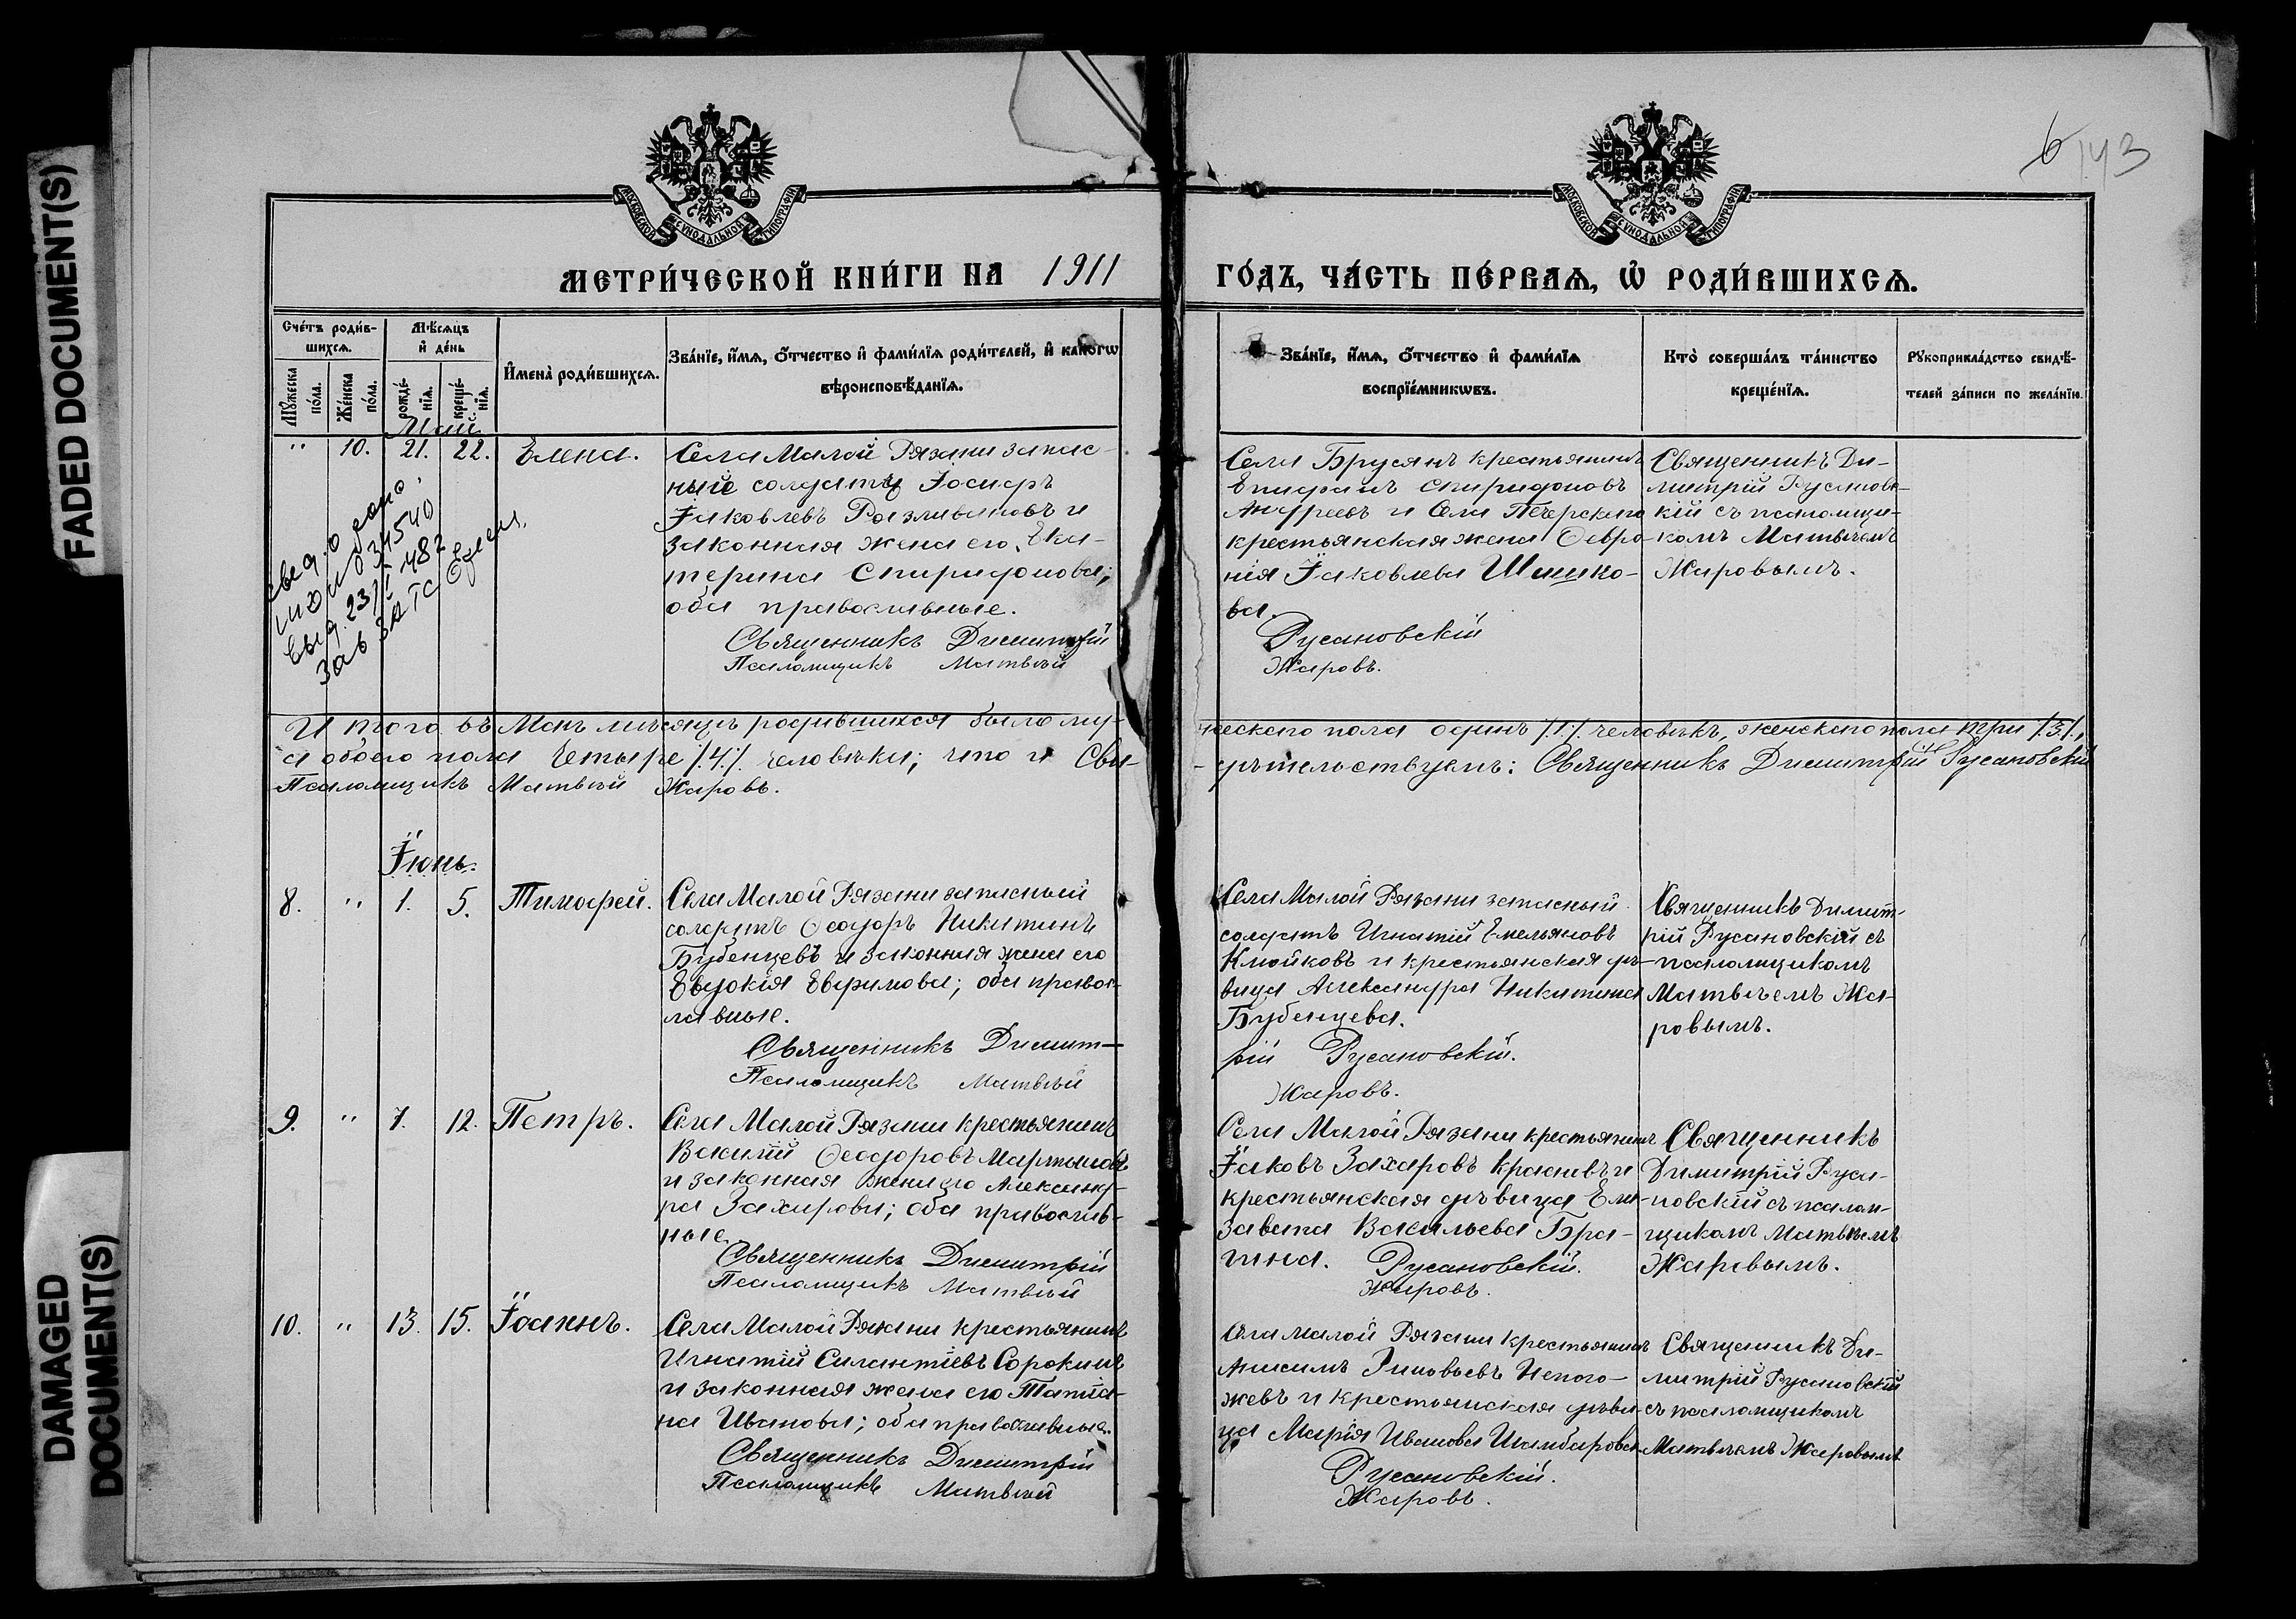 FADED DOCUMENT(S)
DAMAGED
DOCUMENT(S)
143
МОСКОВСКОЙ СѴНОДАЛЬНОЙ ТИПОГРАФІИ
МОСКОВСКОЙ СѴНОДАЛЬНОЙ ТИПОГРАФІИ
МЕТРИ́ЧЕСКОЙ КНИ́ГИ НА 1911 ГО́ДЪ, ЧА́СТЬ ПЕ́РВАѦ, Ѡ҆ РОДИ́ВШИХСѦ.
Сче́тъ роди́в-
шихсѧ.
Мѣ́сѧцъ
и҆ де́нь
Мꙋ́жеска
по́ла.
Же́нска
по́ла.
рожде́-
нїѧ.
креще́-
нїѧ.
И҆мена̀ роди́вшихсѧ.
Зва́нїе, и҆́мѧ, ѻ҆́тчество и҆ фами́лїѧ роди́телей, и҆ како́гѡ
вѣроисповѣ́данїѧ.
Зва́нїе, и҆́мѧ, ѻ҆́тчество и҆ фами́лїѧ
воспрїе́мникѡвъ.
Кто̀ соверша́лъ та́инство
креще́нїѧ.
Рꙋкоприкла́дство свидѣ́-
телей за́писи по жела́нїю.
Май
" 10. 21. 22. Елена.
Села Малой Рязани запас-
ный солдатъ Іосифъ
Іаковлевъ Разливановъ и
законная жена его, Ека-
терина Спиридонова;
оба православные.
Священникъ Димитрій
Псаломщикъ Матвѣй
Села Брусянъ крестьянинъ
Епифанъ Спиридоновъ
Андреевъ и Села Печерскаго
крестьянская жена Февро-
нія Іаковлева Шишко-
ва.
Русановскій
Жаровъ.
Священникъ Ди-
митрій Русановс-
кій съ псаломщи-
комъ Матвѣемъ
Жаровымъ.
034540
Итого въ Маѣ мѣсяцѣ родившихся было му-
жескаго пола одинъ /1/ человѣкъ, женскаго пола три /3/,
а обоего пола четыре /4/ человѣка; что и Сви-
дѣтельствуемъ: Священникъ Димитрій Русановскій
Псаломщикъ Матвѣй Жаровъ.
Іюнь.
8. " 1. 5. Тимофей.
Села Малой Рязани запасный
солдатъ Ѳеодоръ Никитинъ
Бубенцевъ и законная жена его
Евдокія Евфимова; оба правос-
лавные.
Священникъ Димит-
Псаломщикъ Матвѣй
Села Малой Рязани запасный
солдатъ Игнатій Емельяновъ
Клюйковъ и крестьянская дѣ-
вица Александра Никитина
Бубенцева.
рій Русановскій.
Жаровъ.
Священникъ Димит-
рій Русановскій съ
псаломщикомъ
Матвѣемъ Жа-
ровымъ.
9. " 7. 12. Петръ.
Села Малой Рязани крестьянинъ
Василій Ѳеодоровъ Мартыновъ
и законная жена его Александ-
ра Захарова; оба православ-
ные.
Священникъ Димитрій
Псаломщикъ Матвѣй
Села Малой Рязани крестьянинъ
Іаковъ Захаровъ и
крестьянская дѣвица Ели-
завета Васильева Бра-
гина. Русановскій.
Жаровъ.
Священникъ
Димитрій Руса-
новскій съ псалом-
щикомъ Матвѣемъ
Жаровымъ.
10. " 13. 15. Іоаннъ.
Села Малой Рязани крестьянинъ
Игнатій Силантіевъ Сорокинъ
и законная жена его Татіа-
на Иванова; оба православные.
Священникъ Димитрій
Псаломщикъ Матвѣй
Села Малой Рязани крестьянинъ
Анисимъ Зиновьевъ Непого-
жевъ и крестьянская дѣви-
ца Марія Иванова Шамбарова
Русановскій.
Жаровъ.
Священникъ Ди-
митрій Русановскій
съ псаломщикомъ
Матвѣемъ Жаровымъ